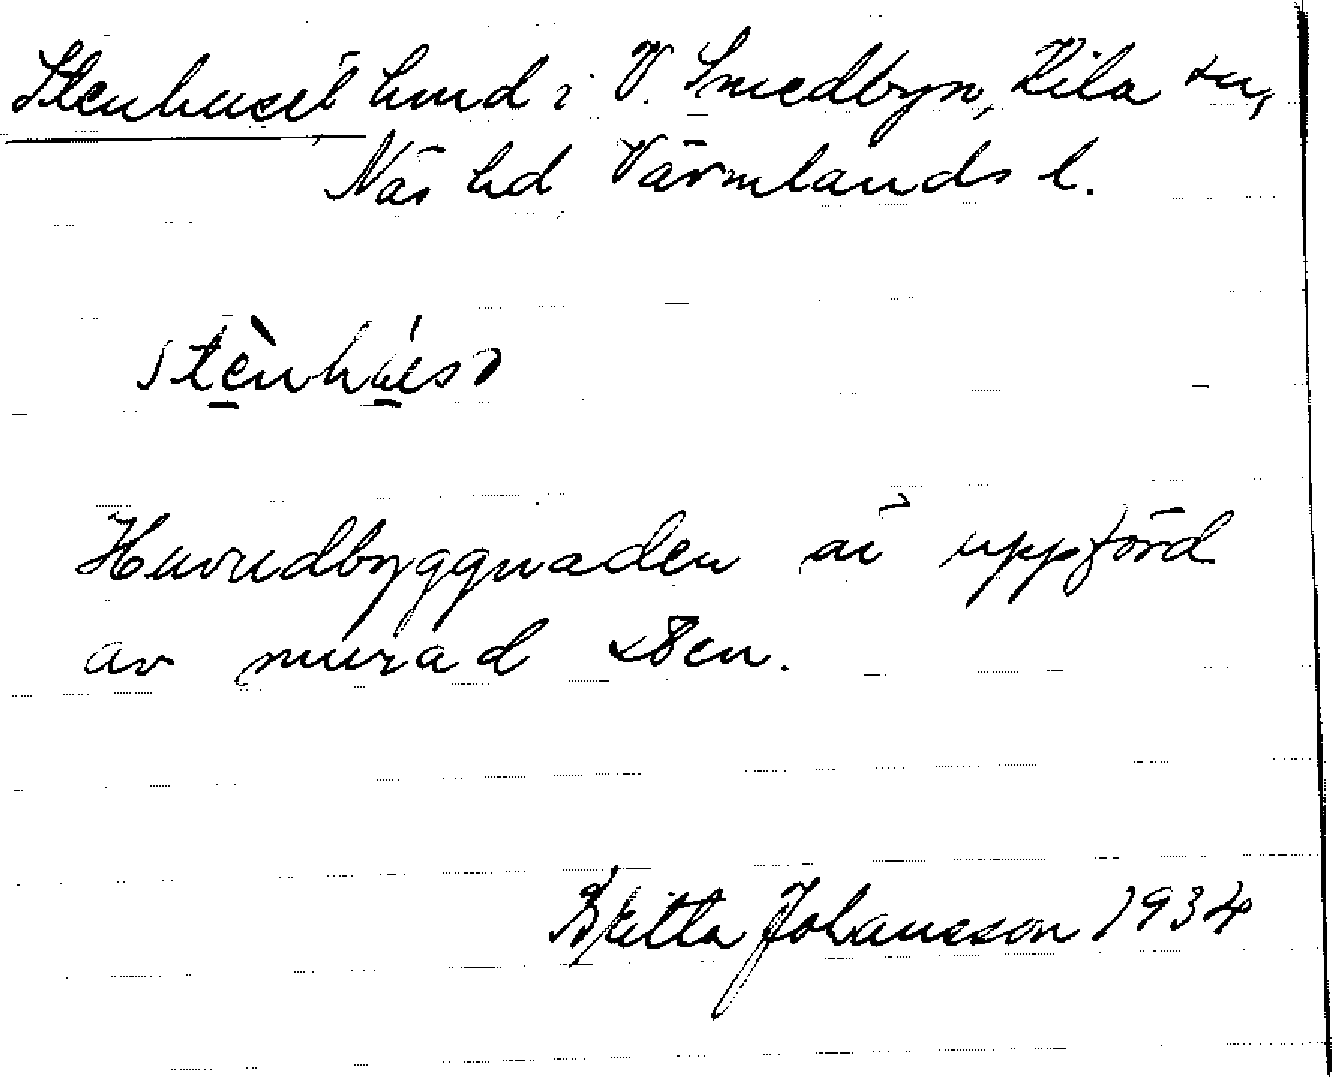 Stenhuset hmd i V. Smedbyn, Kila sn,
Näs hd Värmlands l.
stènhúsə
Huvudbyggnaden är uppförd
av murad sten.
Britta Johansson 1934